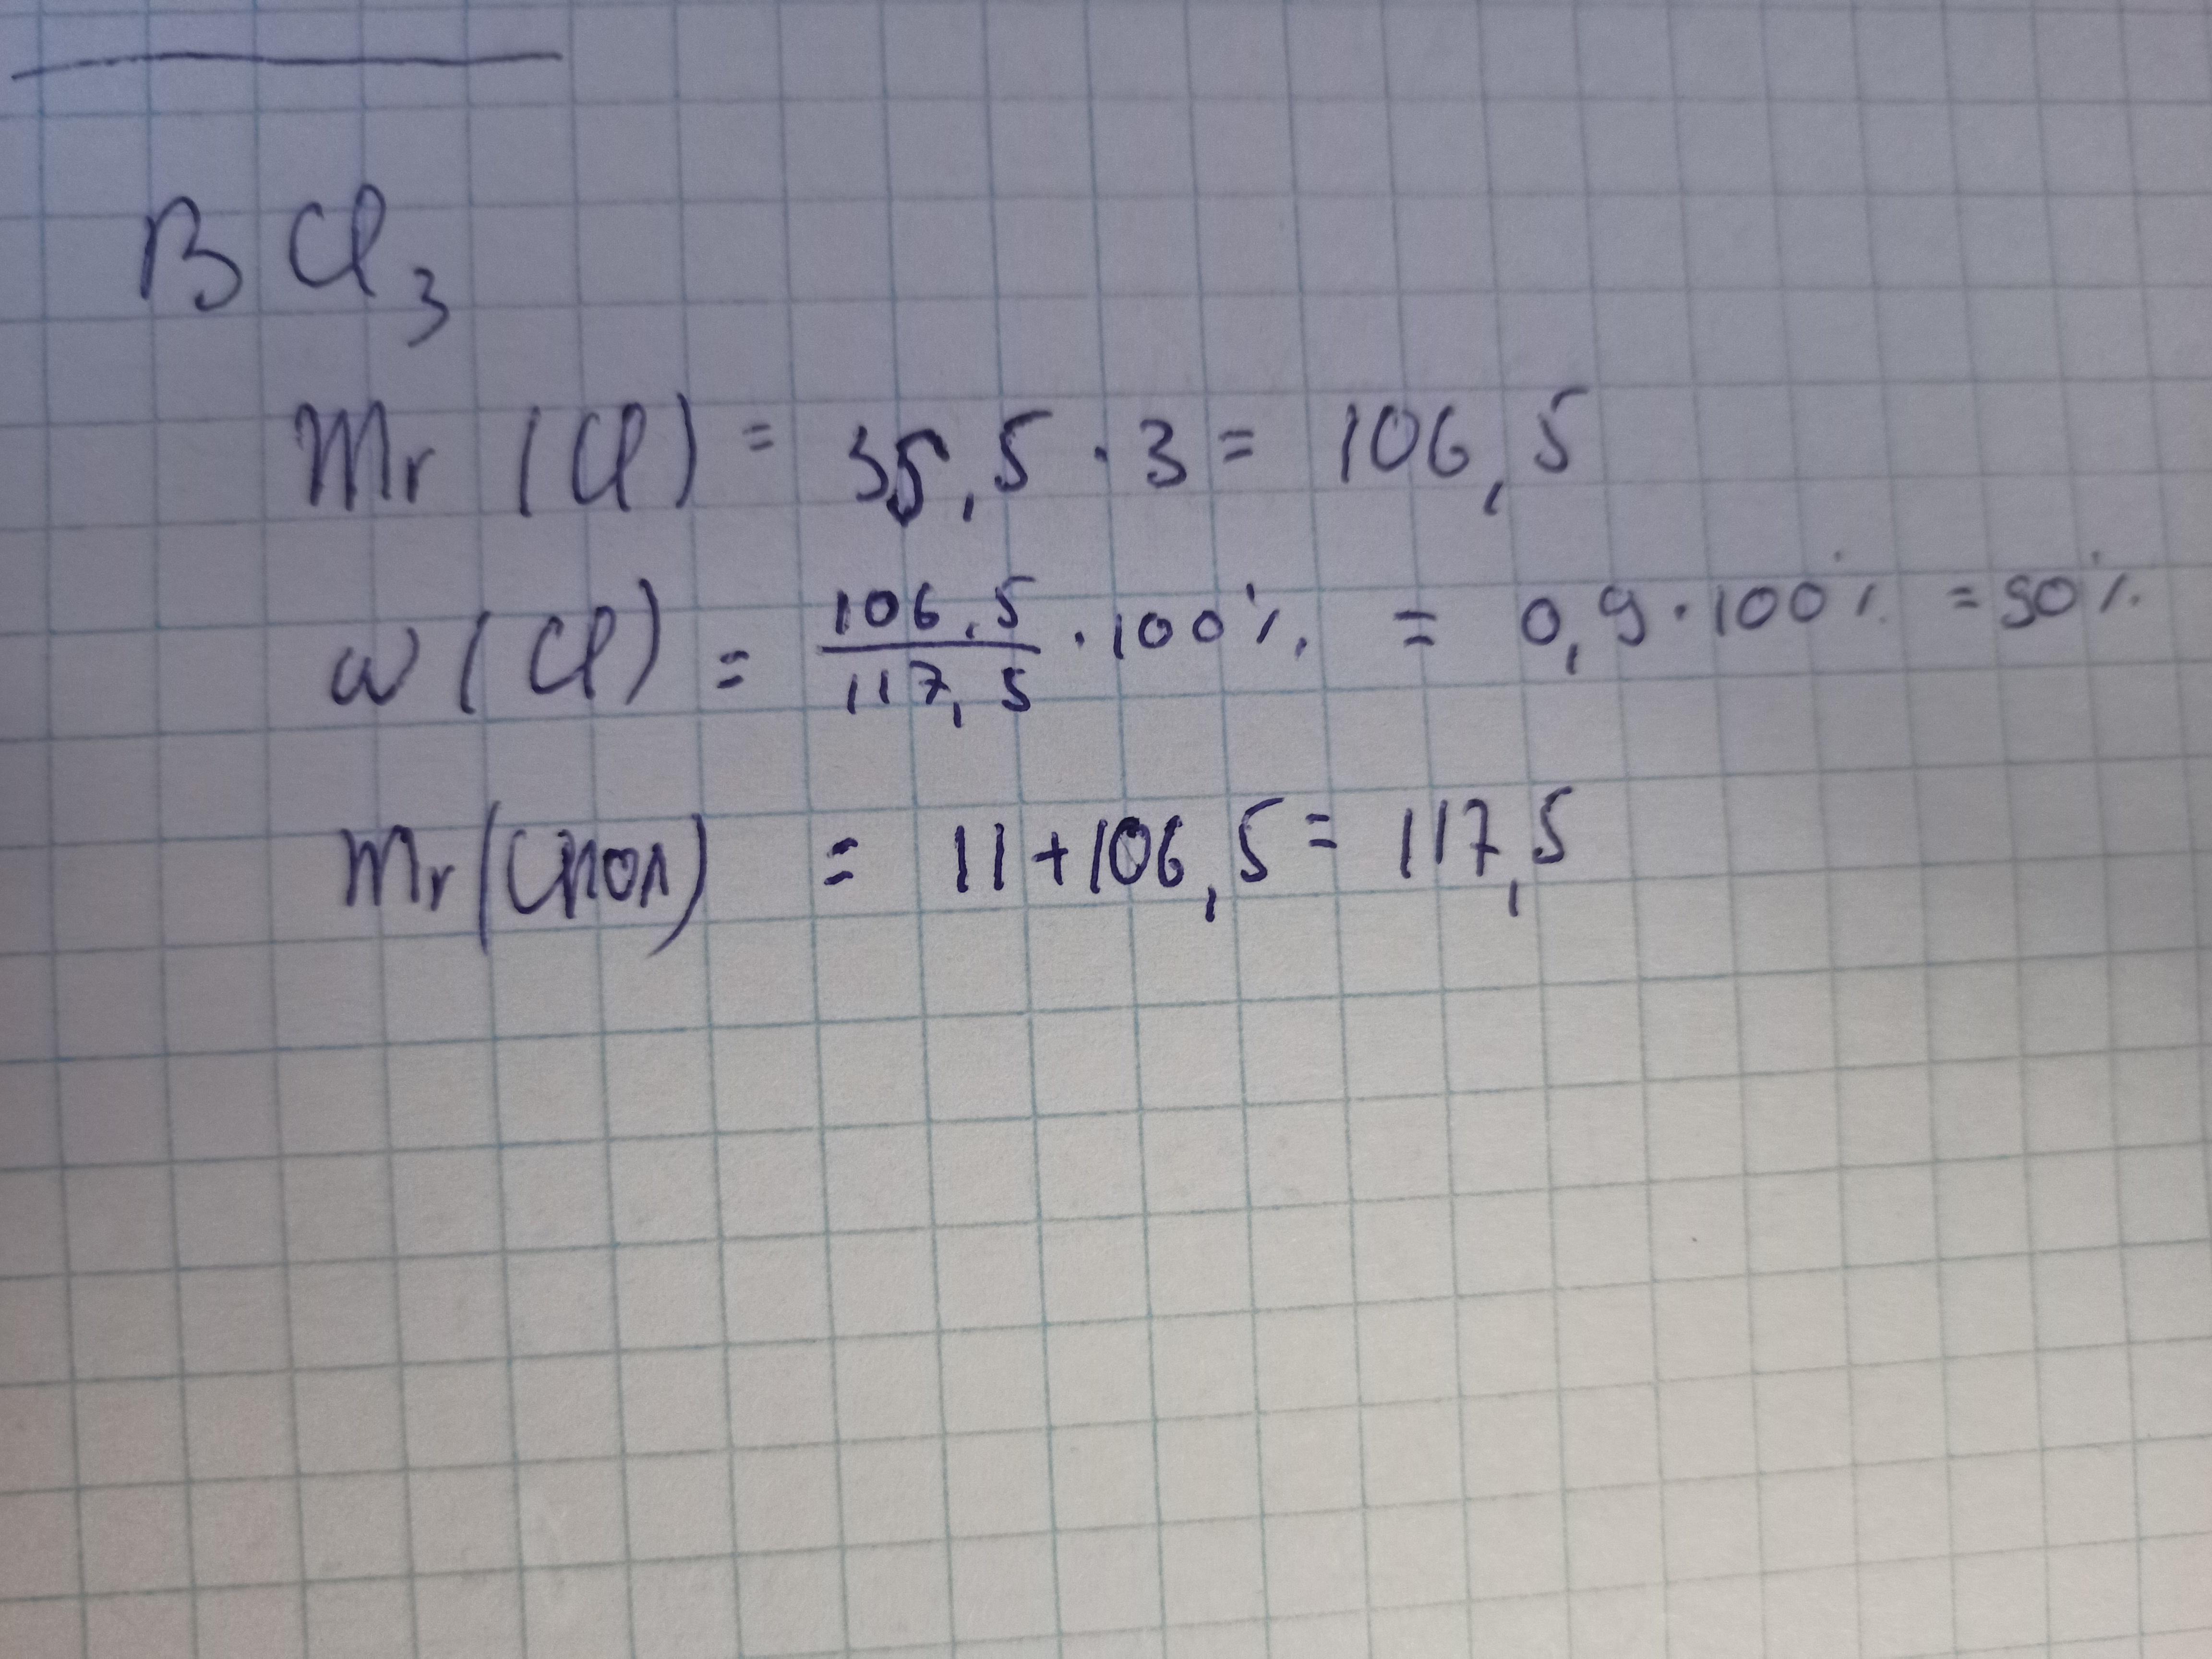 BCl₃
Mr (Cl) = 35,5 · 3 = 106,5
w (Cl) = 106,5/117,5 · 100% = 0,9 · 100% = 90%
Mr (Cпол) = 11 + 106,5 = 117,5